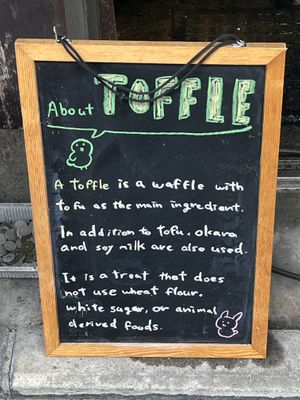 About TOFFLE
A toffle is a waffle with
tofu as the main ingredient.
In addition to tofu, okara
and soy milk are also used.
It is a treat that does
not use wheat flour,
white sugar, or animal
derived foods.